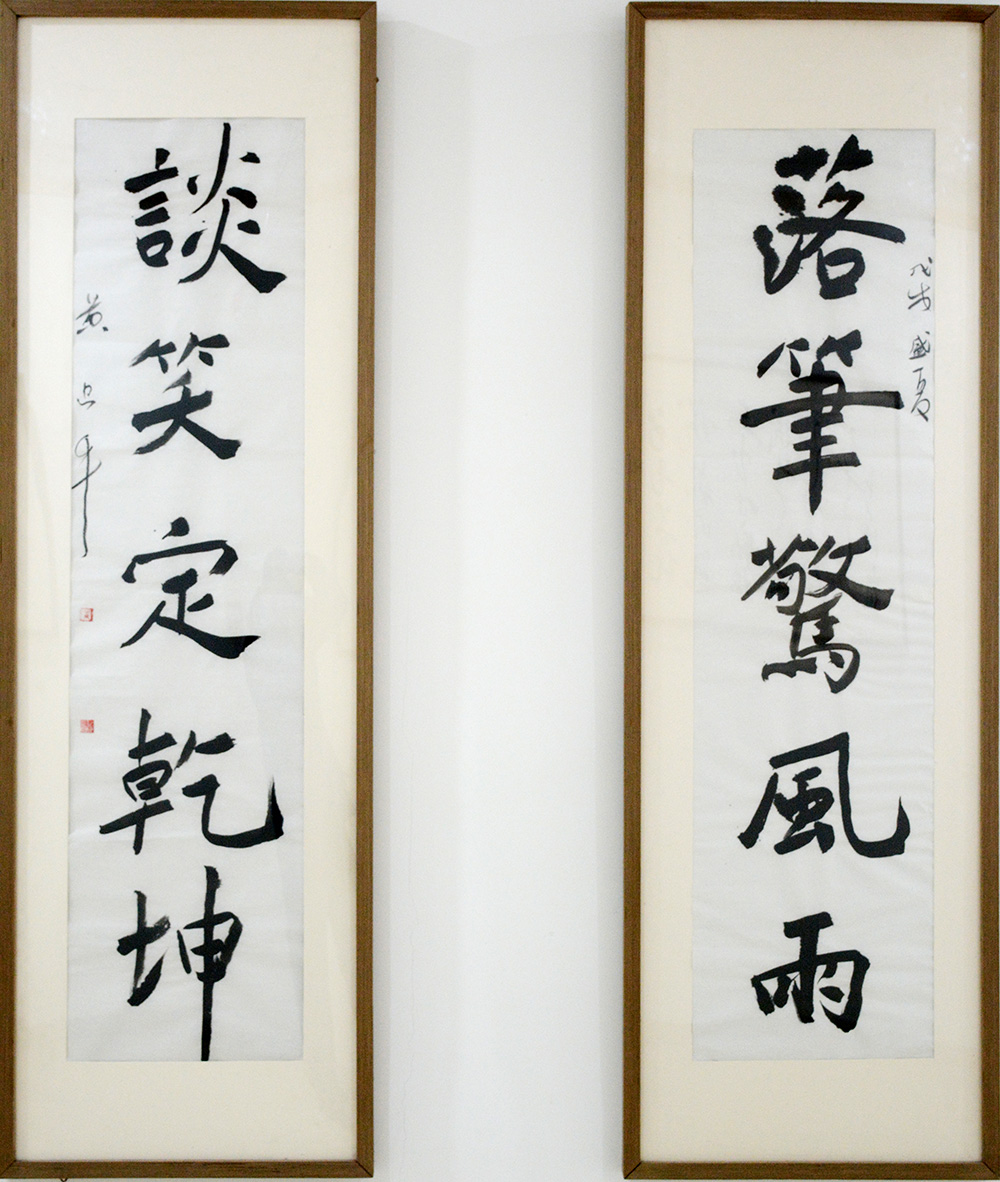 落筆驚風雨
戊戌 盛夏
談笑定乾坤
黄